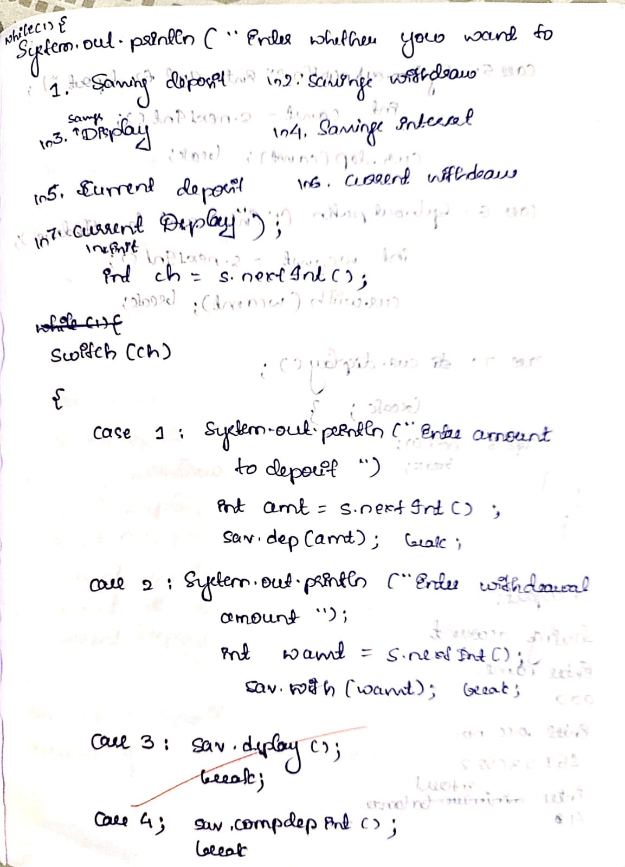 while(1) {
System.out.println ( " Enter whether you want to
1. Saving deposit \n2. Savings withdraw
\n3. savings Display \n4. Savings Interest
\n5. Current deposit \n6. Current withdraw
\n7. Current Display");
int ch = s.nextInt();
while (1) {
switch (ch)
{
case 1 : System.out.println (" Enter amount
to deposit ")
int amt = s.nextInt() ;
sav.dep (amt); break ;
case 2 : System.out.println ("Enter withdrawal
amount ");
int wamt = s.nextInt();
sav.with (wamt); break;
case 3 : sav.display ();
break;
case 4; sav.compdep Int ();
break